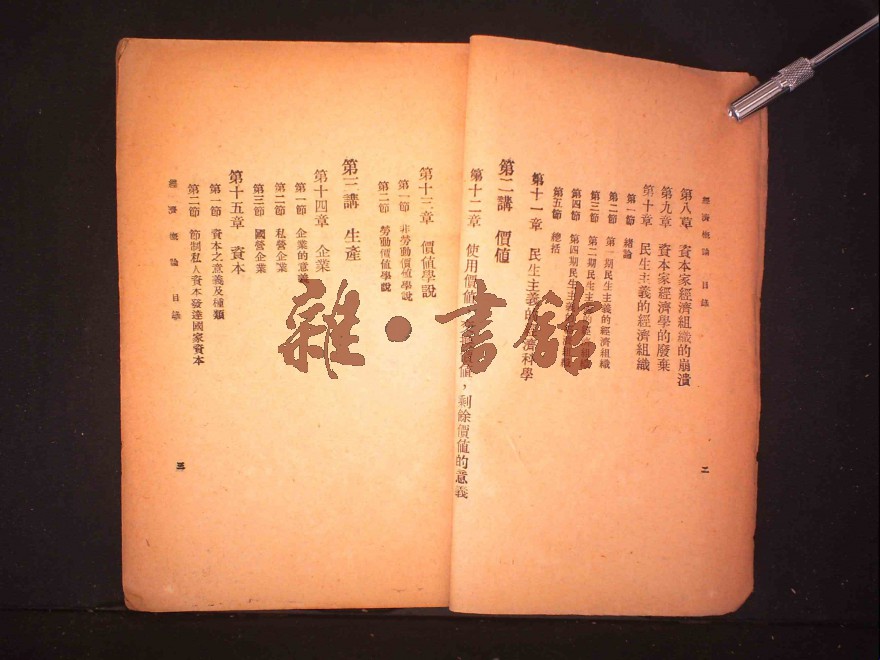 經濟概論 目錄
第八章 資本家經濟組織的崩潰
第九章 資本家經濟學的廢棄
第十章 民生主義的經濟組織
第一節 緒論
第二節 第一期民生主義的經濟組織
第三節 第二期民生主義的經濟組織
第四節 第四期民生主義
第五節 總括
第十一章 民生主義的經濟科學
第二講 價值
第十二章 使用價值,交換價值,剩餘價值的意義
二
第十三章 價值學說
第一節 非勞動價值學說
第二節 勞動價值學說
第三講 生產
第十四章 企業
第一節 企業的意義
第二節 私營企業
第三節 國營企業
第十五章 資本
第一節 資本之意義及種類
第二節 節制私人資本發達國家資本
經濟概論 目錄
三
雜·書館